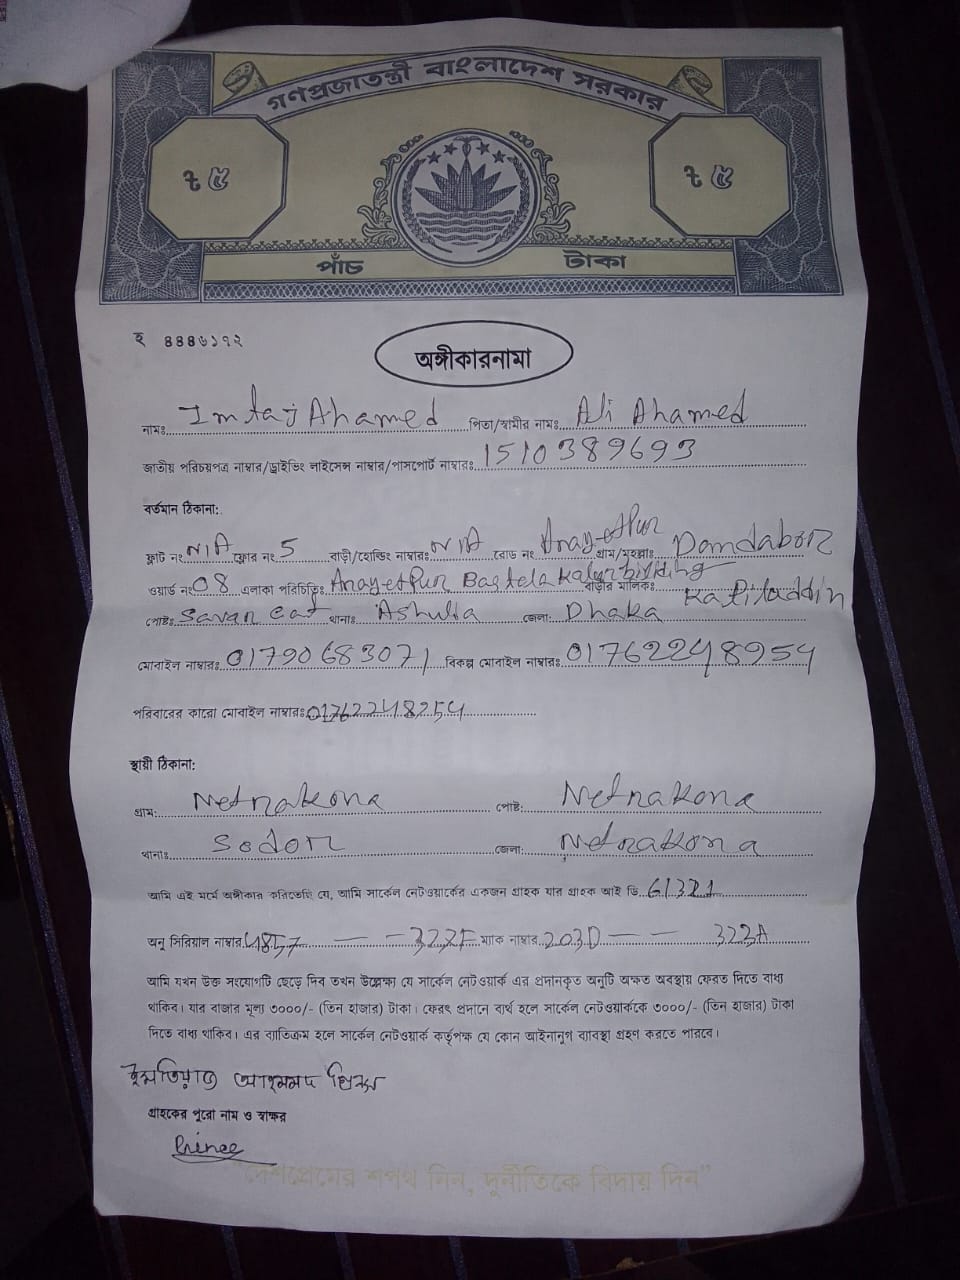 গণপ্রজাতন্ত্রী বাংলাদেশ সরকার
৳ ৫ ৳ ৫
পাঁচ টাকা
হ ৪৪৪৬১৭২
অঙ্গীকারনামা
নামঃ Imtaj Ahamed পিতা/স্বামীর নামঃ Ali Ahamed
জাতীয় পরিচয়পত্র নাম্বার/ড্রাইভিং লাইসেন্স নাম্বার/পাসপোর্ট নাম্বারঃ 1510389693
বর্তমান ঠিকানা:
ফ্লাট নং N/A ফ্লোর নং 5 বাড়ী/হোল্ডিং নাম্বারঃ N/A রোড নং Anayetpur গ্রাম/মহল্লাঃ Dendabor
ওয়ার্ড নং 08 এলাকা পরিচিতিঃ Anayetpur Bastela বাড়ীর মালিকঃ
পোষ্টঃ Savar থানাঃ Ashulia জেলা: Dhaka
মোবাইল নাম্বারঃ 01790683071 বিকল্প মোবাইল নাম্বারঃ 01762248954
পরিবারের কারো মোবাইল নাম্বারঃ 01762248254
স্থায়ী ঠিকানা:
গ্রাম: Netrakona পোষ্ট: Netrakona
থানাঃ Sodor জেলা: Netrakona
আমি এই মর্মে অঙ্গীকার করিতেছি যে, আমি সার্কেল নেটওয়ার্কের একজন গ্রাহক যার গ্রাহক আই ডি 61321
অনু সিরিয়াল নাম্বার 4857 - - 322F ম্যাক নাম্বার 203D - - 323A
আমি যখন উক্ত সংযোগটি ছেড়ে দিব তখন উল্লেক্ষ্য যে সার্কেল নেটওয়ার্ক এর প্রদানকৃত অনুটি অক্ষত অবস্থায় ফেরত দিতে বাধ্য
থাকিব। যার বাজার মূল্য ৩০০০/- (তিন হাজার) টাকা। ফেরৎ প্রদানে ব্যর্থ হলে সার্কেল নেটওয়ার্ককে ৩০০০/- (তিন হাজার) টাকা
দিতে বাধ্য থাকিব। এর ব্যতিক্রম হলে সার্কেল নেটওয়ার্ক কর্তৃপক্ষ যে কোন আইনানুগ ব্যবস্থা গ্রহণ করতে পারবে।
ইমতিয়াজ আহমমদ প্রিন্স
গ্রাহকের পুরো নাম ও স্বাক্ষর
Prince
"দেশপ্রেমের শপথ নিন, দুর্নীতিকে বিদায় দিন"